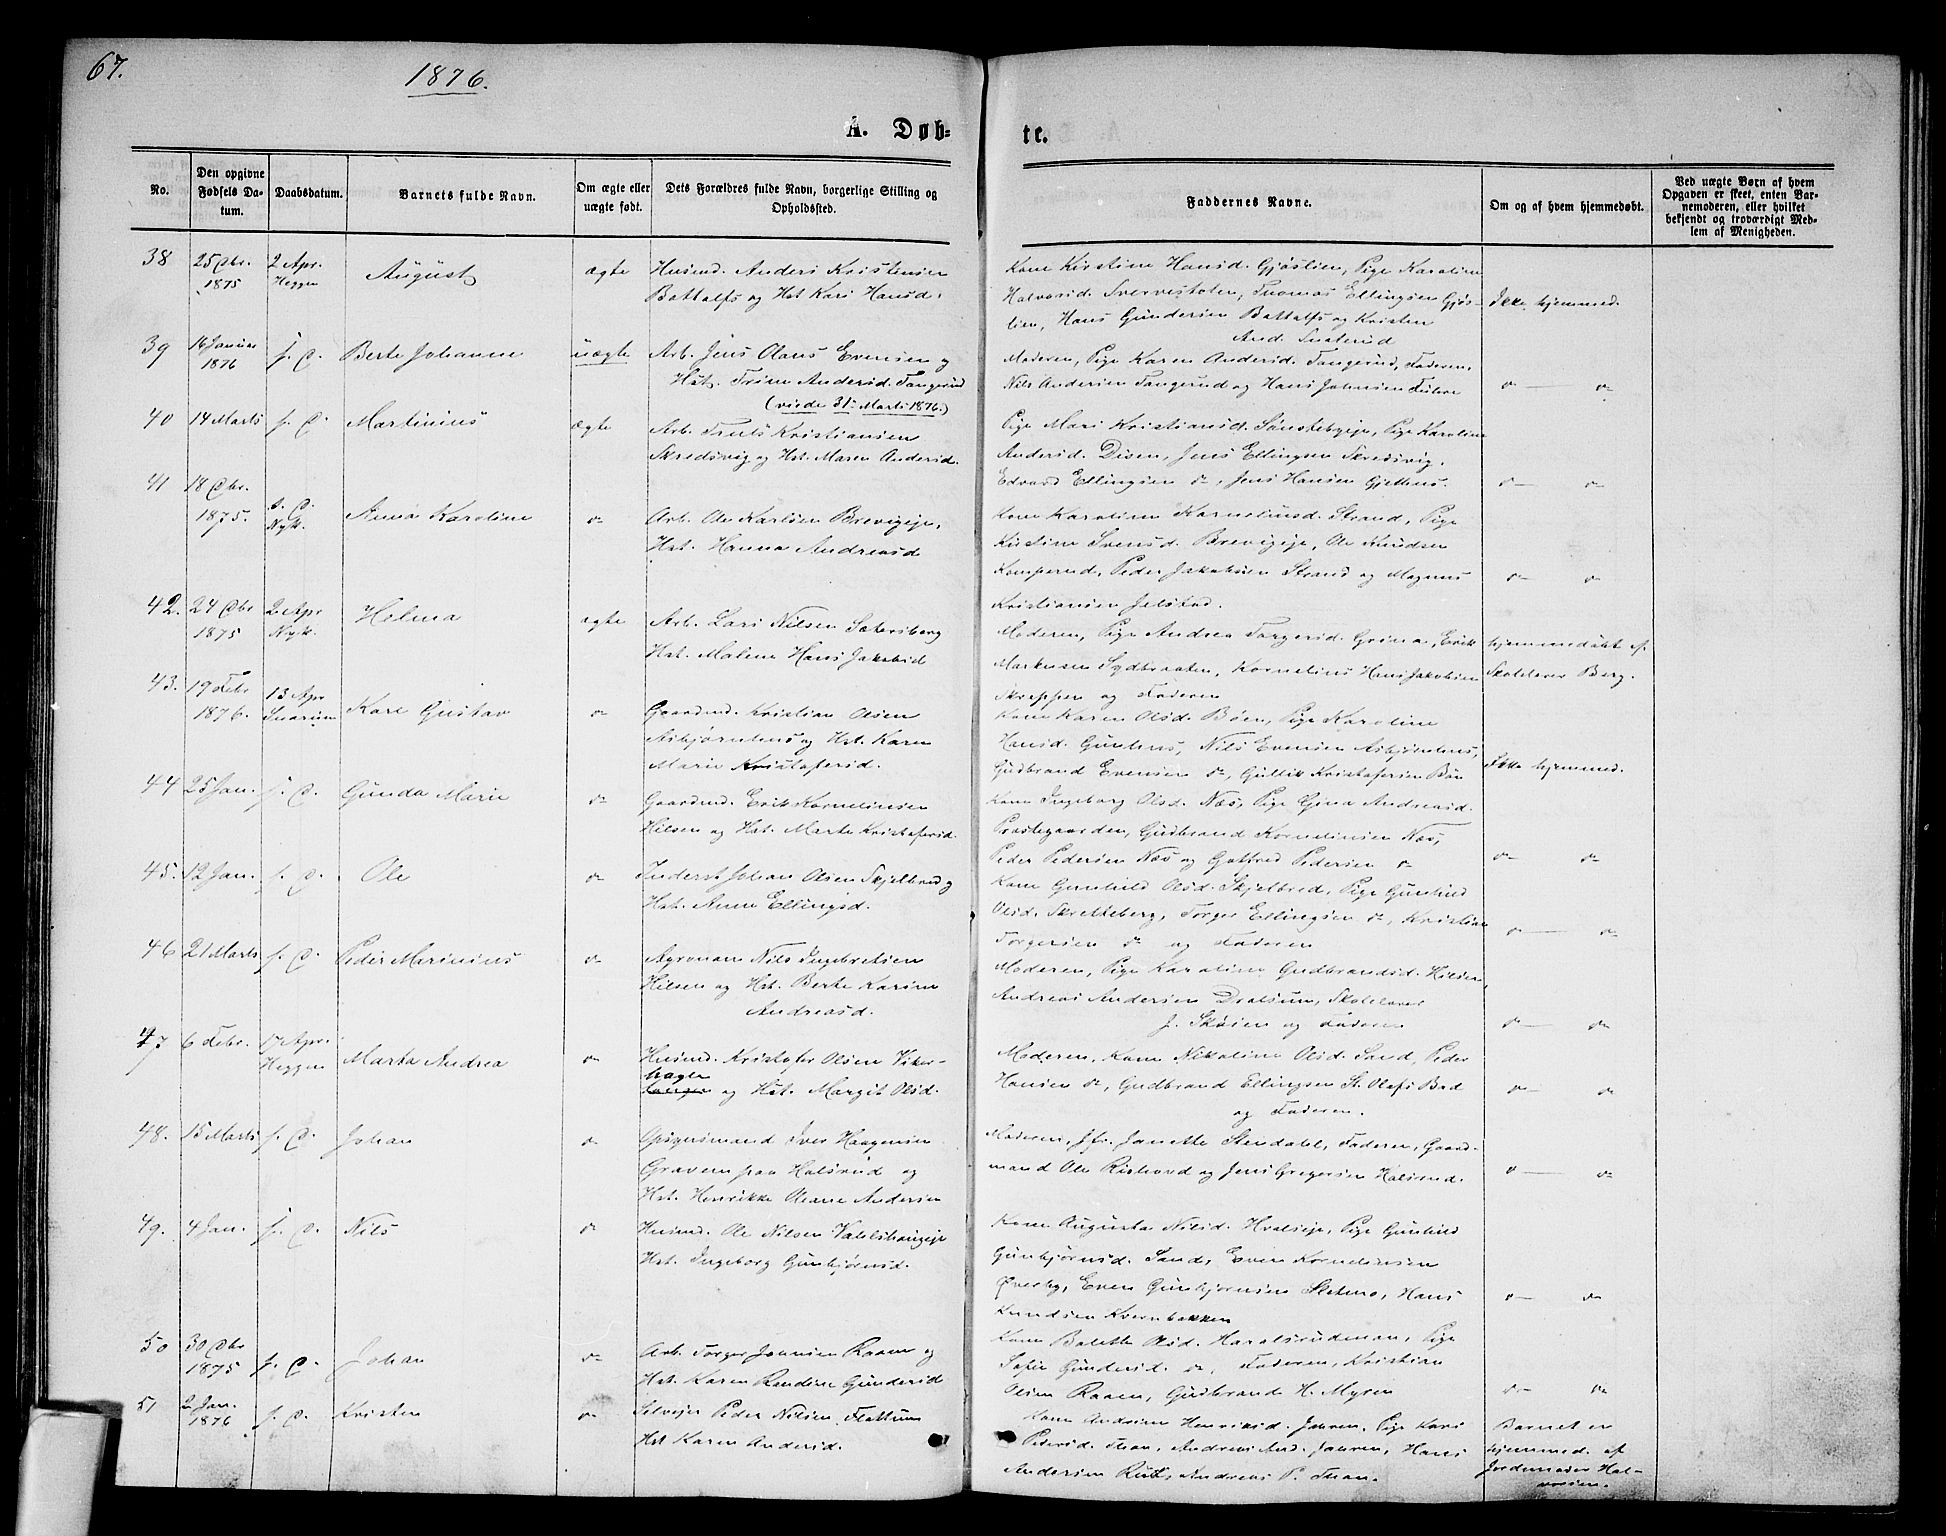 67.
1876.
A. Døb-
te.
No.
Den opgivne Fødsels Da-tum.
Daabsdatum.
Barnets fulde Navn.
Om ægte eller uægte født.
Dets Forældres fulde Navn, borgerlige Stilling og Opholdssted.
Faddernes Navne.
Om og af hvem hjemmedøbt.
Ved uægte Børn af hvem Opgaven er skeet, enten Bar-nemoderen, eller hvilket bekjendt og troværdigt Med-lem af Menigheden.
38 25 Dbr. 1875 2 Apr. Heggen August ægte
Husmd. Anders Kristensen
Battalfs og Hst Kari Hansd.
Kone Kirstine Hansd. Gjøslien, Pige Karoline
Halvorsd. Thomas Ellingsen Gjøs-
lien, Hans Gundersen Battalfs og Kristen
And. Snaterud
Ikke hjemmed.
39 16 Januar 1876 s. D. Berte Johanne uægte
Arb. Jens Olaus Evensen og
Hst. Trine Andersd. Tangerud
(viede 31 Marts 1876.)
Moderen, Pige Karen Andersd. Tangerud, Faderen,
Nils Andersen Tangerud og Hans Johnsen
40 14 Marts s. D. Martinius ægte
Arb. Truls Kristiansen
Skredsvig og Hst. Maren Andersd.
Pige Mari Kristiansd. Pige Karoline
Andersd. Disen, Jens Ellingsen Skredsvig,
Edvard Ellingsen do, Jens Hansen
41 18 Dbr. 1875. s. D. Nyk. Anna Karoline do
Arb. Ole Karlsen Brevigeje,
Hst. Hanna Andreasd
Kone Karoline Korneliusd. Strand, Pige
Kristine Svensd. Brevigeje, Ole Knudsen
Komperud, Peder Jakobsen Strand og Magnus
Kristiansen Jelstad.
42. 24 Dbr 1875 2 Apr Nyk. Helma ægte
Arb. Lars Nilsen Sætersberg
Hst. Malene Hans Jakobsd
Moderen, Pige Andrea Torgersd. Grina, Erik
Markusen Sydbraaten, Kornelius Hans Jakobsen
Skreppen og Faderen
hjemmedøbt af
Skolelærer Berg.
43. 19 Febr 1876. 13 Apr Snarum Karl Gustav do
Gaardmd. Kristian Olsen
og Hst. Karen
Marie Kristofersd.
Kone Karen Olsd. Bøen, Pige Karoline
Hansd. Nils Evensen
Gudbrand Evensen do, Gullik Kristofersen Bøn
Ikke hjemmed.
44 25 Jan. s. D. Gunda Marie do
Gaardmd. Erik Korneliusen
Hilsen og Hst. Marte Kristofersd.
Kone Ingeborg Olsd. Næs, Pige Gina Andreasd.
Præstegaarden, Gudbrand Korneliusen Næs,
Peder Pedersen Næs og Gotfred Pedersen do
45. 12 Jan. s. D. Ole do
Inderst Johan Olsen Skjelbred og
Hst. Anne Ellingsd.
Kone Gunhild Olsd. Skjelbred, Pige Gunhild
Olsd. Skretteberg, Torger Ellingsen do, Kristian
Torgersen do og Faderen
46 21 Marts s. D. Peder Marinius do
Agronom Nils Ingebretsen
Hilsen og Hst. Berte Karine
Andreasd.
Moderen, Pige Karoline Gudbrandsd. Hilsen,
Andreas Andersen Dralsum, Skolelærer
J. Skøien og Faderen
47 6 Febr. 17 Apr. Heggen Marta Andrea do
Husmd. Kristofer Olsen Viker-
hagen og Hst. Margit Olsd.
Moderen, Kone Nikoline Olsd. Sand, Peder
Hansen do, Gudbrand Ellingsen St. Olafs Bad
og Faderen.
48. 15 Marts s. D. Johan do
Opsynsmand Iver Haagensen
Graven paa Halsrud og
Hst. Henrikke Oleane Andersen
Moderen, Jfr. Janette Stendahl, Faderen, Gaard-
mand Ole og Jens Gregersen Halsrud.
49. 4 Jan. s. D. Nils do
Husmd. Ole Nilsen
Hst. Ingeborg Gunbjørnsd.
Kone Augusta Nilsd. Hvalseje, Pige Gunhild
Gunbjørnsd. Sand, Even Korneliusen
Øverby, Even Gunbjørnsen Hans
Knudsen Kvernbakken
50 30 Dbr 1875 s. D. Johan do
Arb. Torger Jonsen Raaen og
Hst. Karen Randine Gundersd
Kone Bolette Olsd. Haralsrudmoen, Pige
Sofie Gundersd. do, Faderen, Kristian
Olsen Raaen, Gudbrand H. Myren
51 2 Jan. 1876 s. D. Kristen do
Selvejer Peder Nilsen Flattum
Hst Karen Andersd.
Kone Andrine Henriksd. Jahren, Pige Kari
Pedersd. Thon, Andreas And. Jahren, Hans
Andersen Andreas P. Thon.
Barnet er
hjemmed. af
Jordemoder Hal-
vorsen.